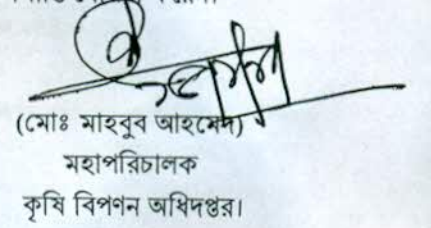 (মোঃ মাহবুব আহমেদ)
মহাপরিচালক
কৃষি বিপণন অধিদপ্তর।